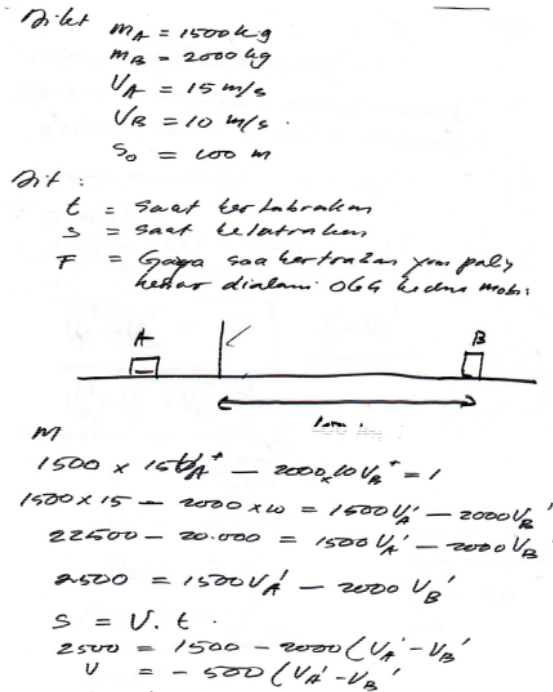 Dikt m_A = 1500 kg
m_B = 2000 kg
V_A = 15 m/s
V_B = 10 m/s.
S_0 = 100 m
Dit :
t = saat bertabrakan
s = saat
F = Gaya saa yang
besar dialami oleh kedua mobi
A B
100
M
1500 x 15 V_A^+ - 2000 x 10 V_B^+ = 1
1500 x 15 - 2000 x 10 = 1500 V_A' - 2000 V_B'
22500 - 20.000 = 1500 V_A' - 2000 V_B'
2500 = 1500 V_A' - 2000 V_B'
S = V. t.
2500 = 1500 - 2000 (V_A' - V_B'
V = - 500 (V_A' - V_B'